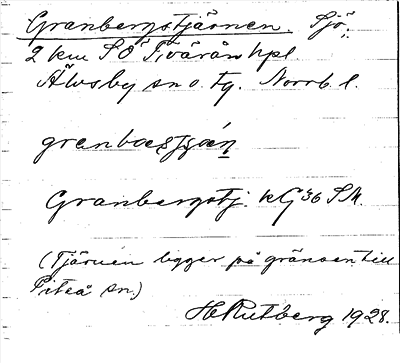 Granbergstjärnen. Sjö;
2 km SÖ Tvärån hpl.
Älvsby sn o. tg. Norrb. l.
Granbergstj. kG 36 SM.
(Tjärnen ligger på gränsen till
Piteå sn.)
H Rutberg 1928.